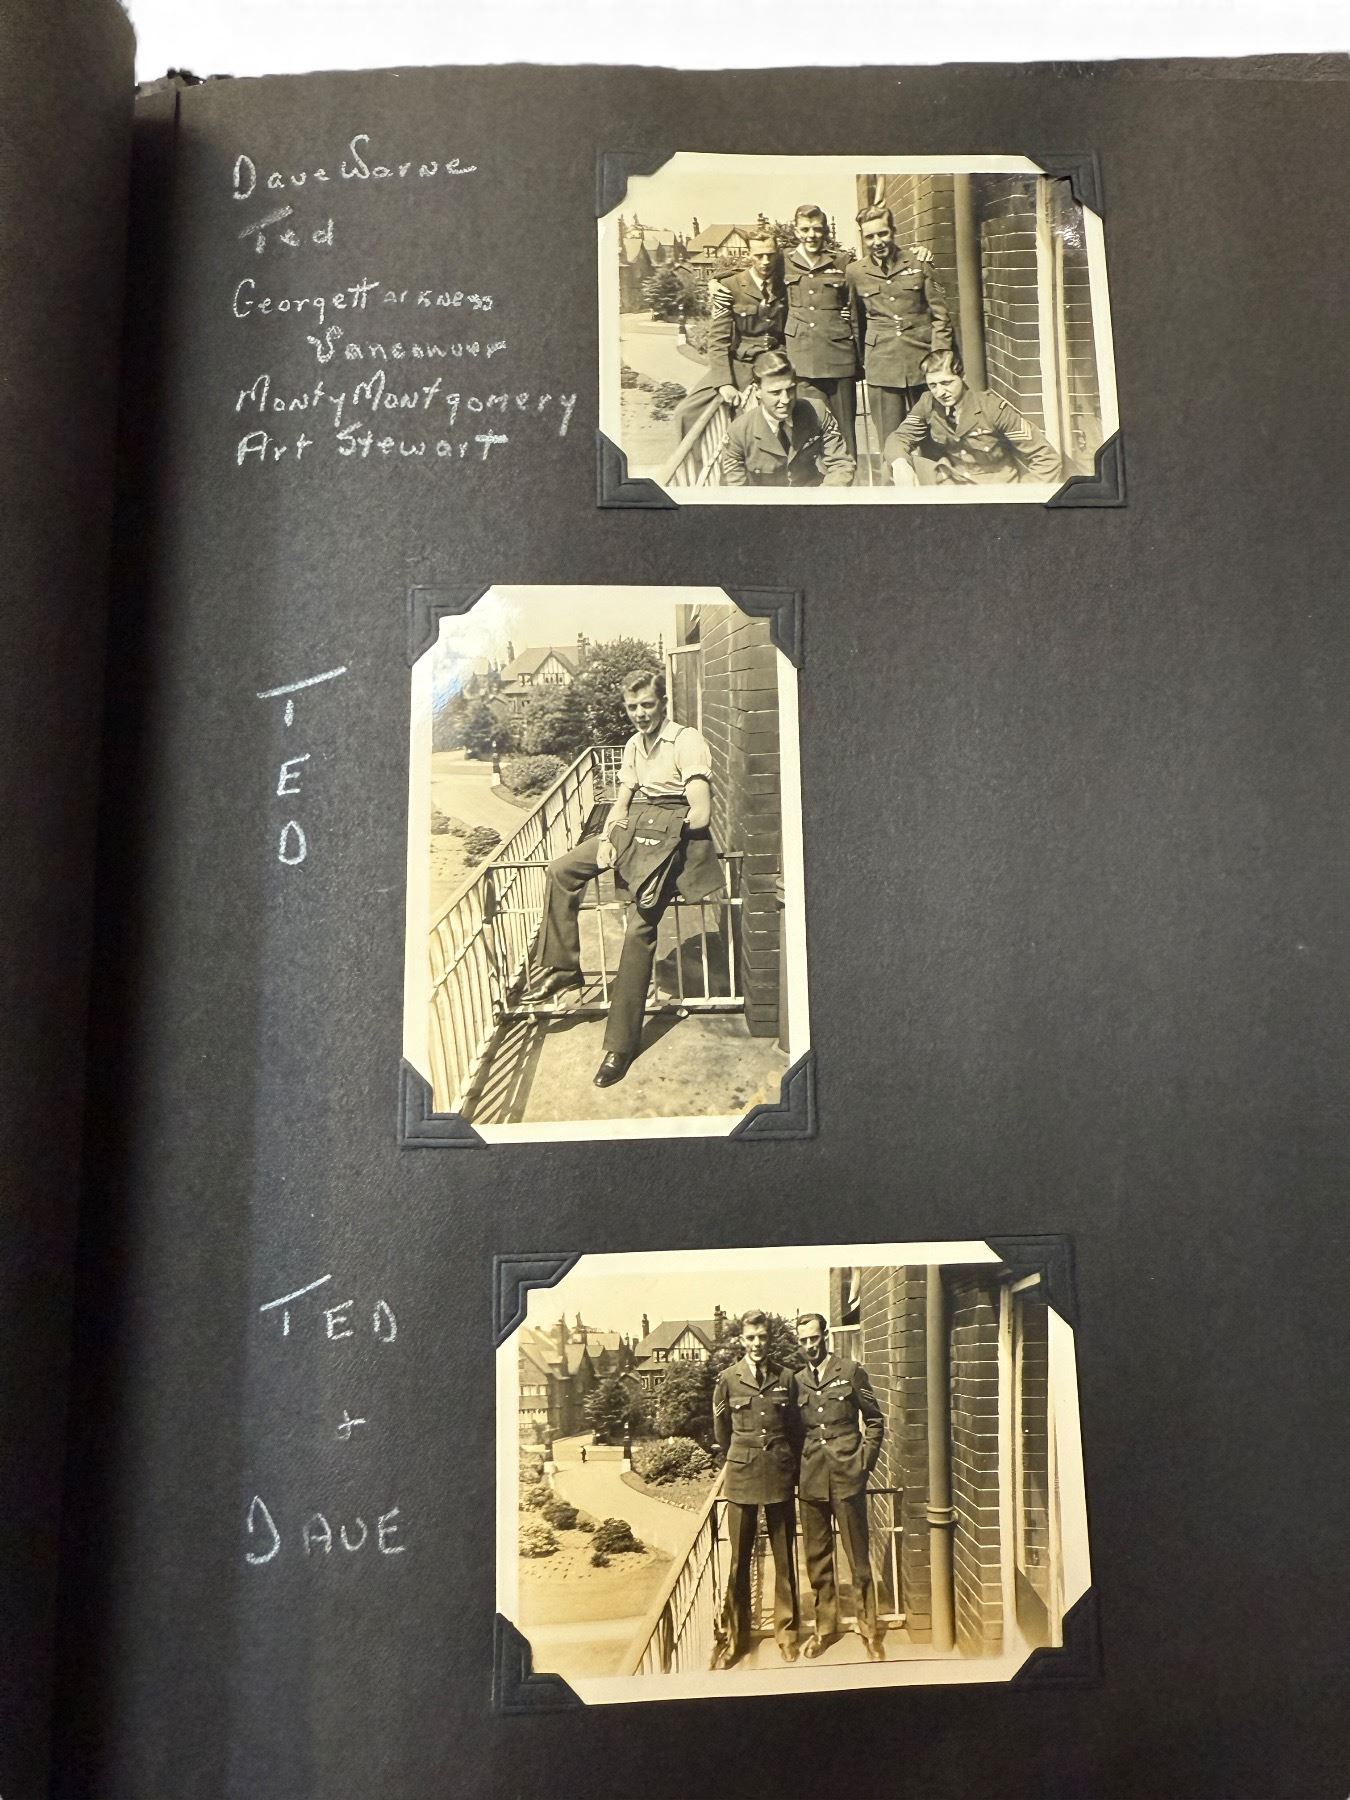 Dave Warne
Ted
George Harkness
Vancouver
Monty Montgomery
Art Stewart
T
E
D
TED
+
DAVE